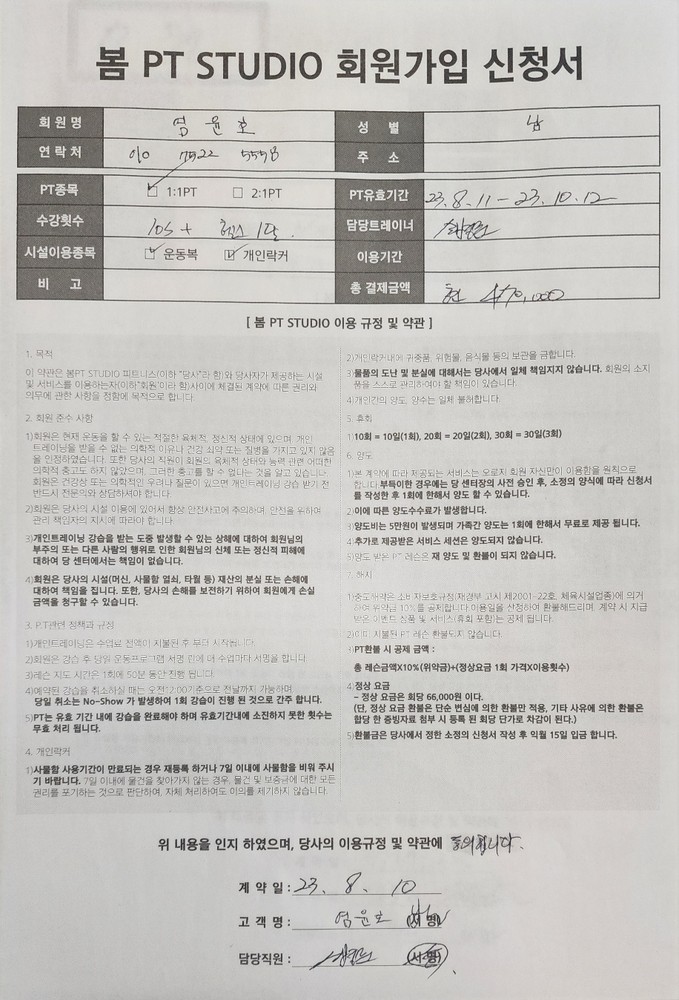 봄 PT STUDIO 회원가입 신청서
회 원 명 엄 윤 호 성 별 남
연 락 처 010 7522 5558 주 소
PT종목 1:1PT 2:1PT PT유효기간 23. 8. 11 - 23. 10. 12
수강횟수 10S + 헬스 1달. 담당트레이너
시설이용종목 운동복 개인락커 이용기간
비 고 총 결제금액 현 470,000
[ 봄 PT STUDIO 이용 규정 및 약관 ]
1. 목적
이 약관은 봄PT STUDIO 피트니스(이하 "당사"라 함)와 당사자가 제공하는 시설
및 서비스를 이용하는자(이하"회원"이라 함)사이에 체결된 계약에 따른 권리와
의무에 관한 사항을 정함에 목적으로 합니다.
2. 회원 준수 사항
1)회원은 현재 운동을 할 수 있는 적절한 육체적, 정신적 상태에 있으며, 개인
트레이닝을 받을 수 없는 의학적 이유나 건강 쇠약 또는 질병을 가지고 있지 않음
을 인정하였습니다. 또한 당사의 직원이 회원의 육체적 상태와 능력 관련 어떠한
의학적 충고도 하지 않았으며, 그러한 충고를 할 수 없다는 것을 알고 있습니다.
회원은 건강상 또는 의학적인 우려나 질문이 있으면 개인트레이닝 강습 받기 전
반드시 전문의와 상담하셔야 합니다.
2)회원은 당사의 시설 이용에 있어서 항상 안전사고에 주의하며, 안전을 위하여
관리 책임자의 지시에 따라야 합니다.
3)개인트레이닝 강습을 받는 도중 발생할 수 있는 상해에 대하여 회원님의
부주의 또는 다른 사람의 행위로 인한 회원님의 신체 또는 정신적 피해에
대하여 당 센터에서는 책임이 없습니다.
4)회원은 당사의 시설(머신, 사물함 열쇠, 타월 등) 재산의 분실 또는 손해에
대하여 책임을 집니다. 또한, 당사의 손해를 보전하기 위하여 회원에게 손실
금액을 청구할 수 있습니다.
3. P.T관련 정책과 규정
1)개인트레이닝은 수업료 전액이 지불된 후 부터 시작됩니다.
2)회원은 강습 후 당일 운동프로그램 서명 란에 매 수업마다 서명을 합니다.
3)레슨 지도 시간은 1회에 50분 동안 진행 됩니다.
4)예약된 강습을 취소하실 때는 오전12:00기준으로 전날까지 가능하며,
당일 취소는 No-Show 가 발생하여 1회 강습이 진행 된 것으로 간주 합니다.
5)PT는 유효 기간 내에 강습을 완료해야 하며 유효기간내에 소진하지 못한 횟수는
무효 처리 됩니다.
4. 개인락커
1)사물함 사용기간이 만료되는 경우 재등록 하거나 7일 이내에 사물함을 비워 주시
기 바랍니다. 7일 이내에 물건을 찾아가지 않는 경우, 물건 및 보증금에 대한 모든
권리를 포기하는 것으로 판단하여, 자체 처리하여도 이의를 제기하지 않습니다.
2)개인락커내에 귀중품, 위험물, 음식물 등의 보관을 금합니다.
3)물품의 도난 및 분실에 대해서는 당사에서 일체 책임지지 않습니다. 회원의 소지
품을 스스로 관리하여야 할 책임이 있습니다.
4)개인간의 양도, 양수는 일체 불허합니다.
5. 휴회
1)10회 = 10일(1회), 20회 = 20일(2회), 30회 = 30일(3회)
6. 양도
1)본 계약에 따라 제공되는 서비스는 오로지 회원 자신만이 이용함을 원칙으로
합니다. 부득이한 경우에는 당 센터장의 사전 승인 후, 소정의 양식에 따라 신청서
를 작성한 후 1회에 한해서 양도 할 수 있습니다.
2)이에 따른 양도수수료가 발생합니다.
3)양도비는 5만원이 발생되며 가족간 양도는 1회에 한해서 무료로 제공 됩니다.
4)추가로 제공받는 서비스 세션은 양도되지 않습니다.
5)양도 받은 PT 레슨은 재 양도 및 환불이 되지 않습니다.
7. 해지
1)중도해약은 소비자보호규정(재경부 고시 제2001-22호, 체육시설업종)에 의거
하여 위약금 10%를 공제합니다.이용일을 산정하여 환불해드리며, 계약 시 지급
받은 이벤트 상품 및 서비스(휴회 포함)는 공제 됩니다.
2)이미 지불된 PT 레슨 환불되지 않습니다.
3)PT환불 시 공제 금액 :
총 레슨금액X10%(위약금)+(정상요금 1회 가격X이용횟수)
4)정상 요금
- 정상 요금은 회당 66,000원 이다.
(단, 정상 요금 환불은 단순 변심에 의한 환불만 적용, 기타 사유에 의한 환불은
합당 한 증빙자료 첨부 시 등록 된 회당 단가로 차감이 된다.)
5)환불금은 당사에서 정한 소정의 신청서 작성 후 익월 15일 입금 합니다.
위 내용을 인지 하였으며, 당사의 이용규정 및 약관에 동의합니다.
계 약 일 : 23. 8. 10
고 객 명 : 엄윤호 (서명)
담당직원 : (서명)